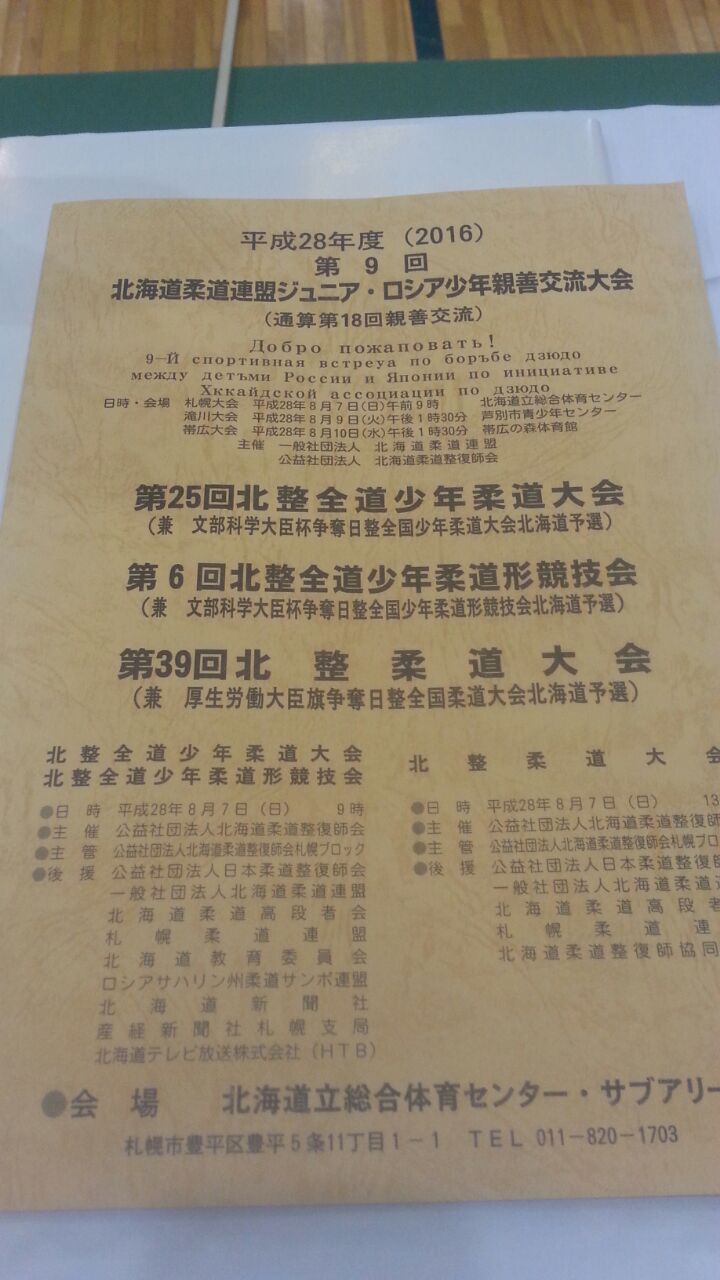 平成28年度（2016）
第9回
北海道柔道連盟ジュニア・ロシア少年親善交流大会
（通算第18回親善交流）
Добро пожаповать!
9-Й спортивная встреуа по борьбе дзюдо
между детьми России и Японии по инициативе
Хккайдской ассоциации по дзюдо
日時・会場 札幌大会 平成28年8月7日(日)午前9時 北海道立総合体育センター
滝川大会 平成28年8月9日(火)午後1時30分 芦別市青少年センター
帯広大会 平成28年8月10日(水)午後1時30分 帯広の森体育館
主催 一般社団法人 北海道柔道連盟
公益社団法人 北海道柔道整復師会
第25回北整全道少年柔道大会
（兼 文部科学大臣杯争奪日整全国少年柔道大会北海道予選）
第6回北整全道少年柔道形競技会
（兼 文部科学大臣杯争奪日整全国少年柔道形競技会北海道予選）
第39回北整柔道大会
（兼 厚生労働大臣旗争奪日整全国柔道大会北海道予選）
北整全道少年柔道大会
北整全道少年柔道形競技会
●日時 平成28年8月7日（日） 9時
●主催 公益社団法人北海道柔道整復師会
●主管 公益社団法人北海道柔道整復師会札幌ブロック
●後援 公益社団法人日本柔道整復師会
一般社団法人北海道柔道連盟
北海道柔道高段者会
札幌柔道連盟
北海道教育委員会
ロシアサハリン州柔道サンボ連盟
北海道新聞社
産経新聞社札幌支局
北海道テレビ放送株式会社（HTB）
北整柔道大会
●日時 平成28年8月7日（日） 13
●主催 公益社団法人北海道柔道整復師
●主管 公益社団法人北海道柔道整復師会札幌ブロ
●後援 公益社団法人日本柔道整復師
一般社団法人北海道柔道連
北海道柔道高段者
札幌柔道連
北海道柔道整復師協同
●会場 北海道立総合体育センター・サブアリー
札幌市豊平区豊平5条11丁目1－1 TEL 011－820－1703